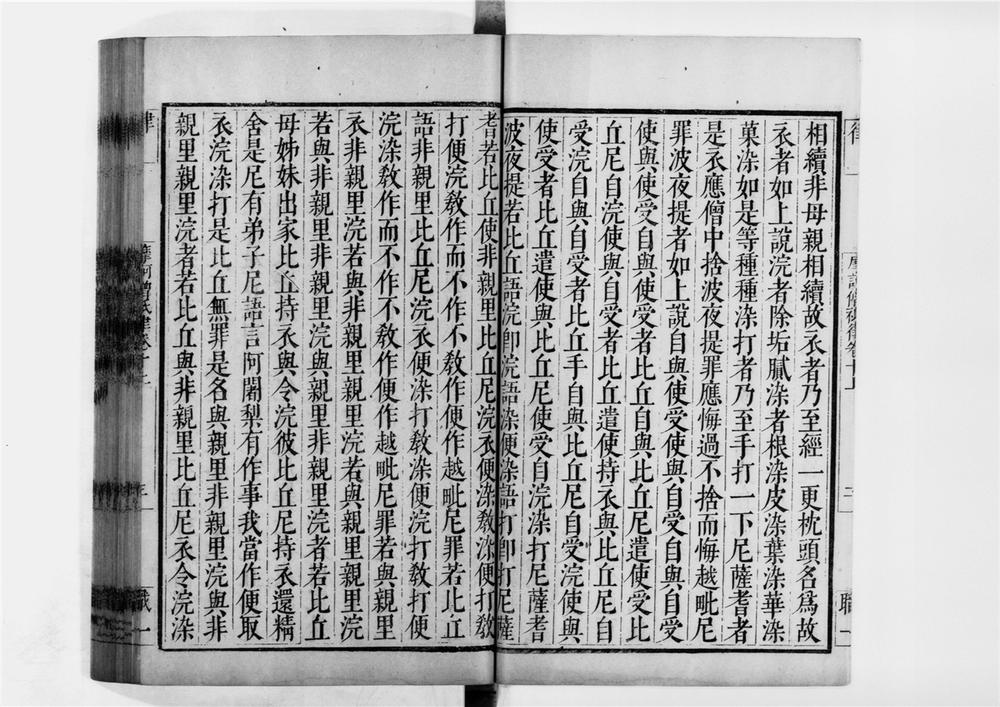 相續非母親相續故衣者乃至經一更枕頭名爲故
衣者如上說浣者除垢膩染者根染皮染葉染華染
菓染如是等種種染打者乃至手打一下尼薩耆者
是衣應僧中捨波夜提罪應悔過不捨而悔越毗尼
罪波夜提者如上說自與使受使與自受自與自受
使與使受自與使受者比丘自與比丘尼遣使受比
丘尼自浣使與自受者比丘遣使持衣與比丘尼自
受浣自與自受者比丘手自與比丘尼自受浣使與
使受者比丘遣使與比丘尼使受自浣染打尼薩耆
波夜提若比丘語浣卽浣語染便染語打卽打尼薩
耆若比丘使非親里比丘尼浣衣便染敎染便打敎
打便浣敎作而不作不敎作便作越毗尼罪若比丘
語非親里比丘尼浣衣便染打敎染便浣打敎打便
浣染敎作而不作不敎作便作越毗尼罪若與親里
衣非親里浣若與非親里親里浣若與親里親里浣
若與非親里非親里浣與親里非親里浣者若比丘
母姊妹出家比丘持衣與令浣彼比丘尼持衣還精
舍是尼有弟子尼語言阿闍梨有作事我當作便取
衣浣染打是比丘無罪是名與親里非親里浣與非
親里親里浣者若比丘與非親里比丘尼衣令浣染
律
摩訶僧祇律卷十一
三
職一